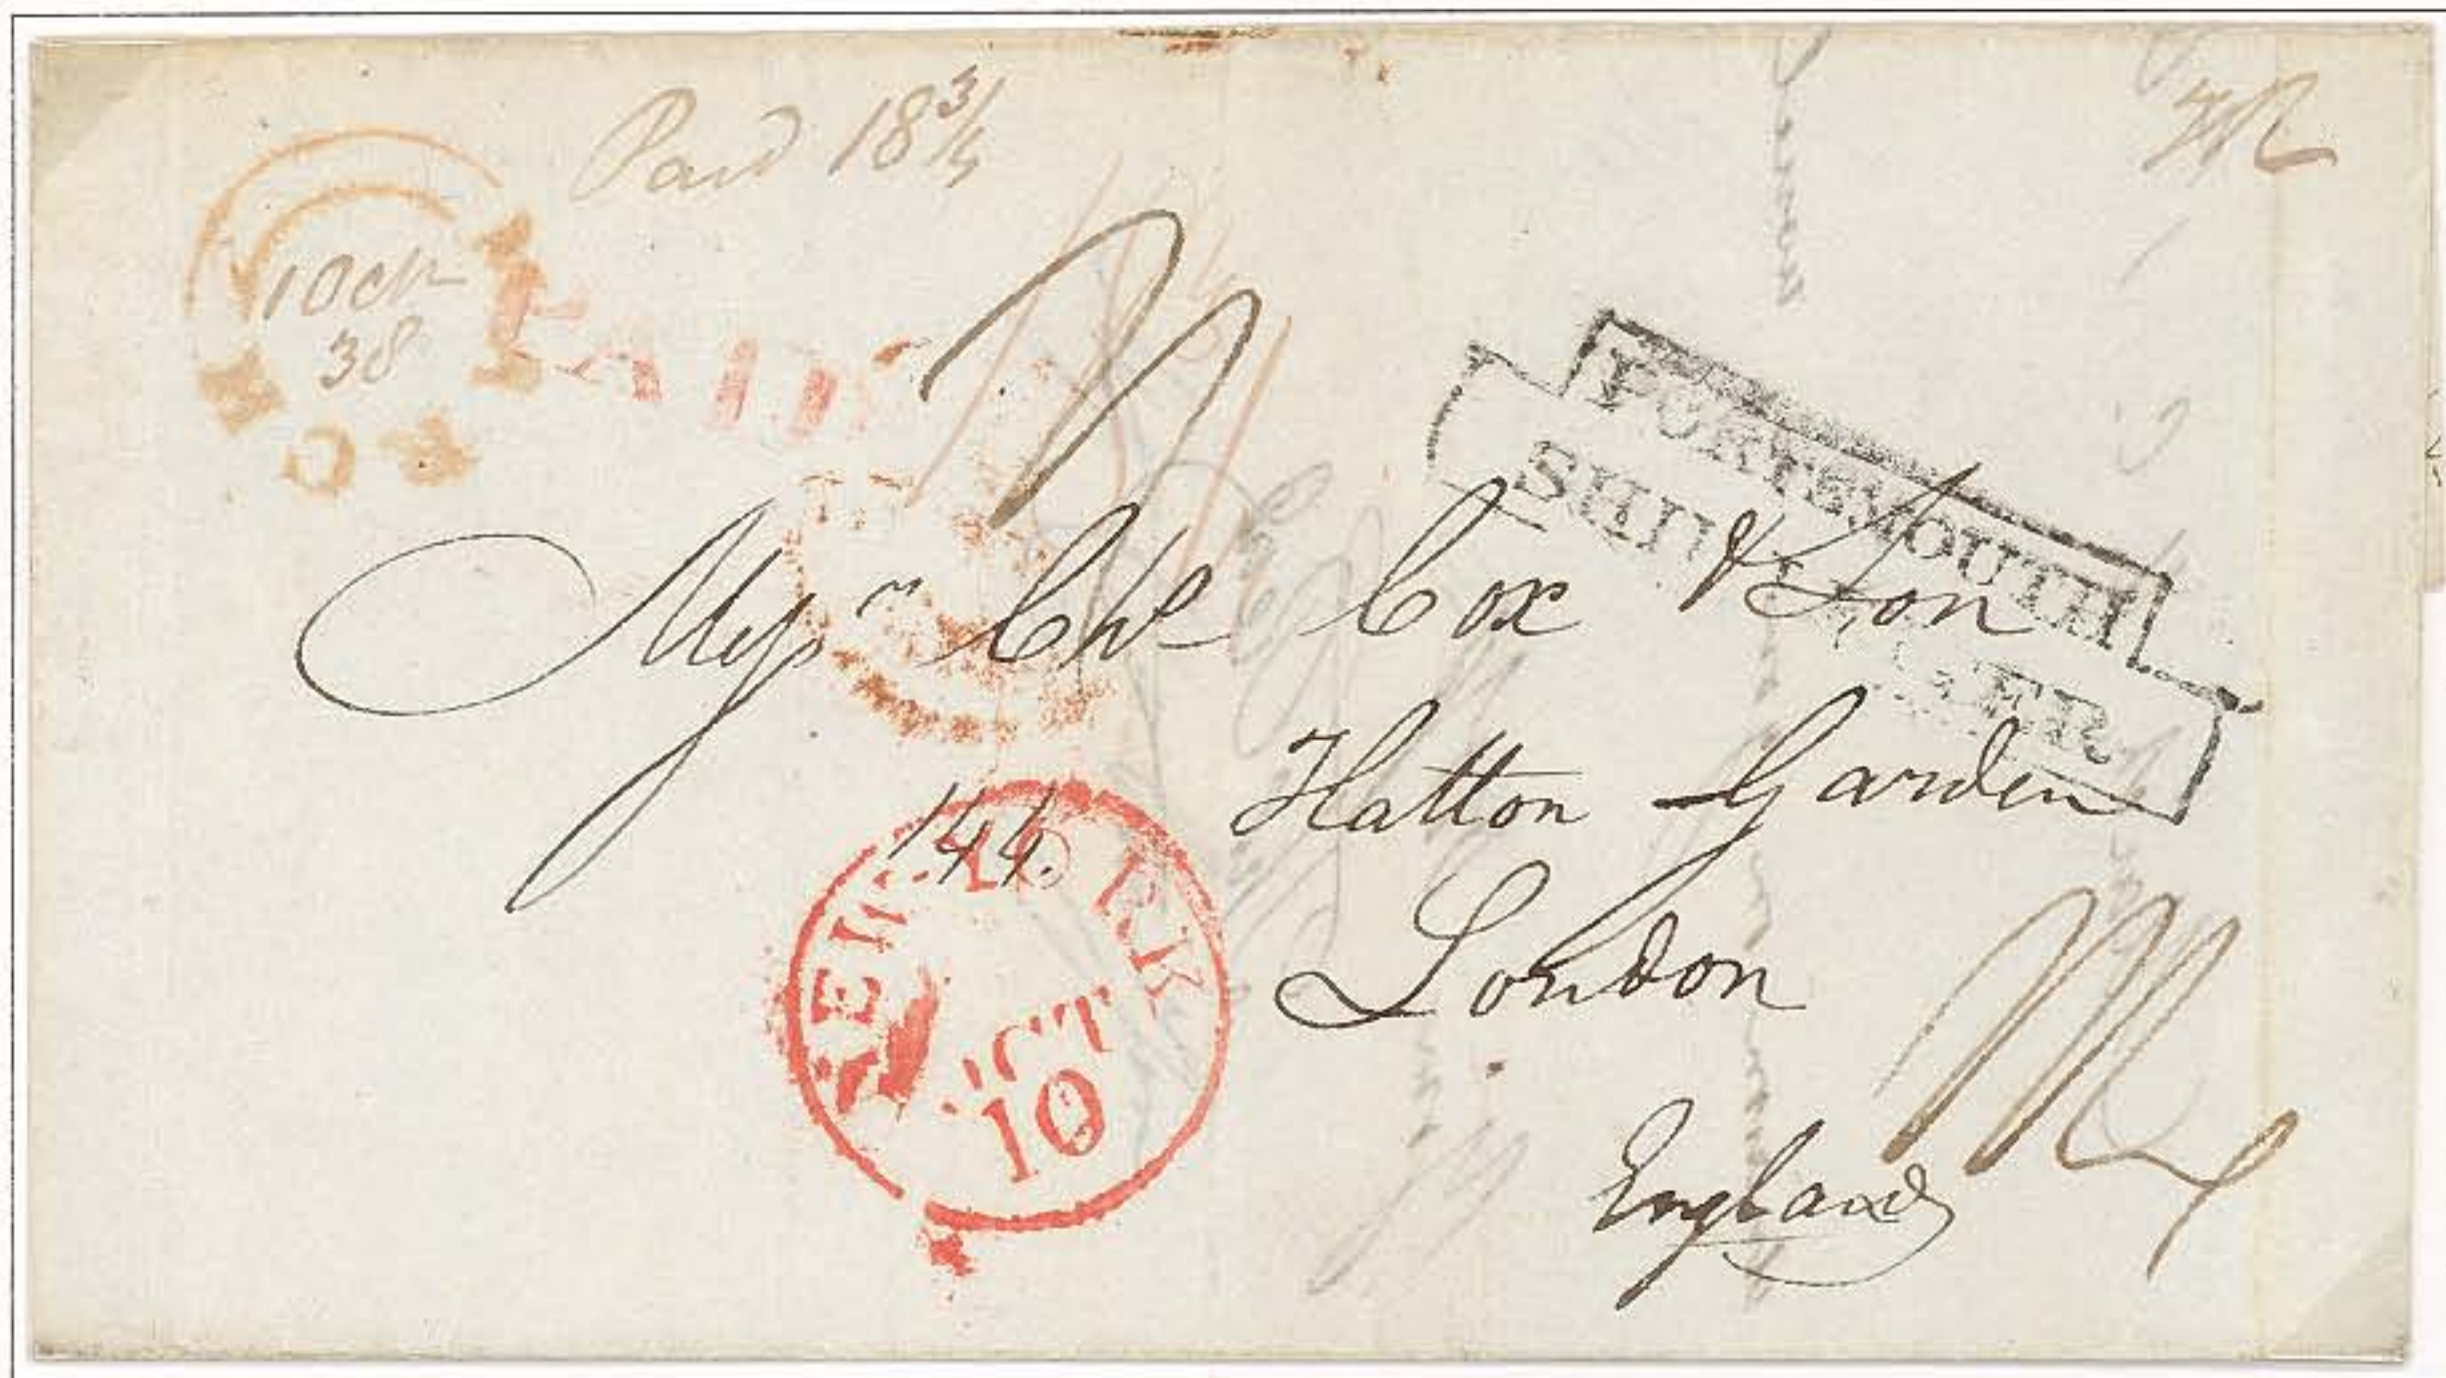 Paid 18 3/4
10 Oct
38
PAID
PORTSMOUTH
SHIP LETTER
Messrs Chs Cox & Son
Hatton Garden
London
England
144.
NEW YORK
OCT
10